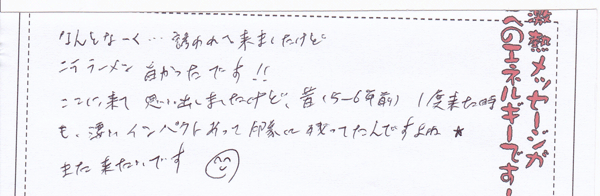 なんとなーく…誘われて来ましたけど
ニラ ラーメン 旨かったです!!
ここに来て 思い出しましたけど、昔(5~6年前) 1度来た時
も、凄い インパクトあって 印象に残ってたんですよね ★
また 来たいです
激熱メッセージが
へのエネルギーです!